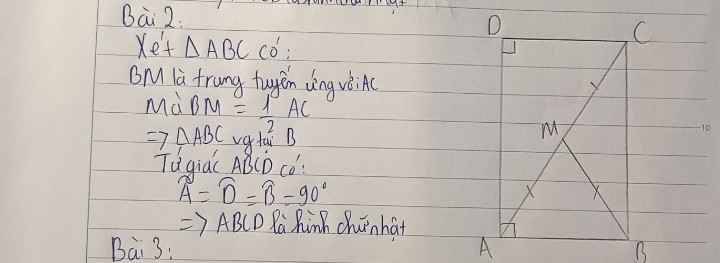 Bài 2:
Xét ΔABC có:
BM là trung tuyến ứng với AC
Mà BM = 1/2 AC
=> ΔABC vg tại B
Tứ giác ABCD có:
Â = D̂ = B̂ = 90°
=> ABCD là hình chữ nhật
Bài 3:
D
C
M
A
B
10